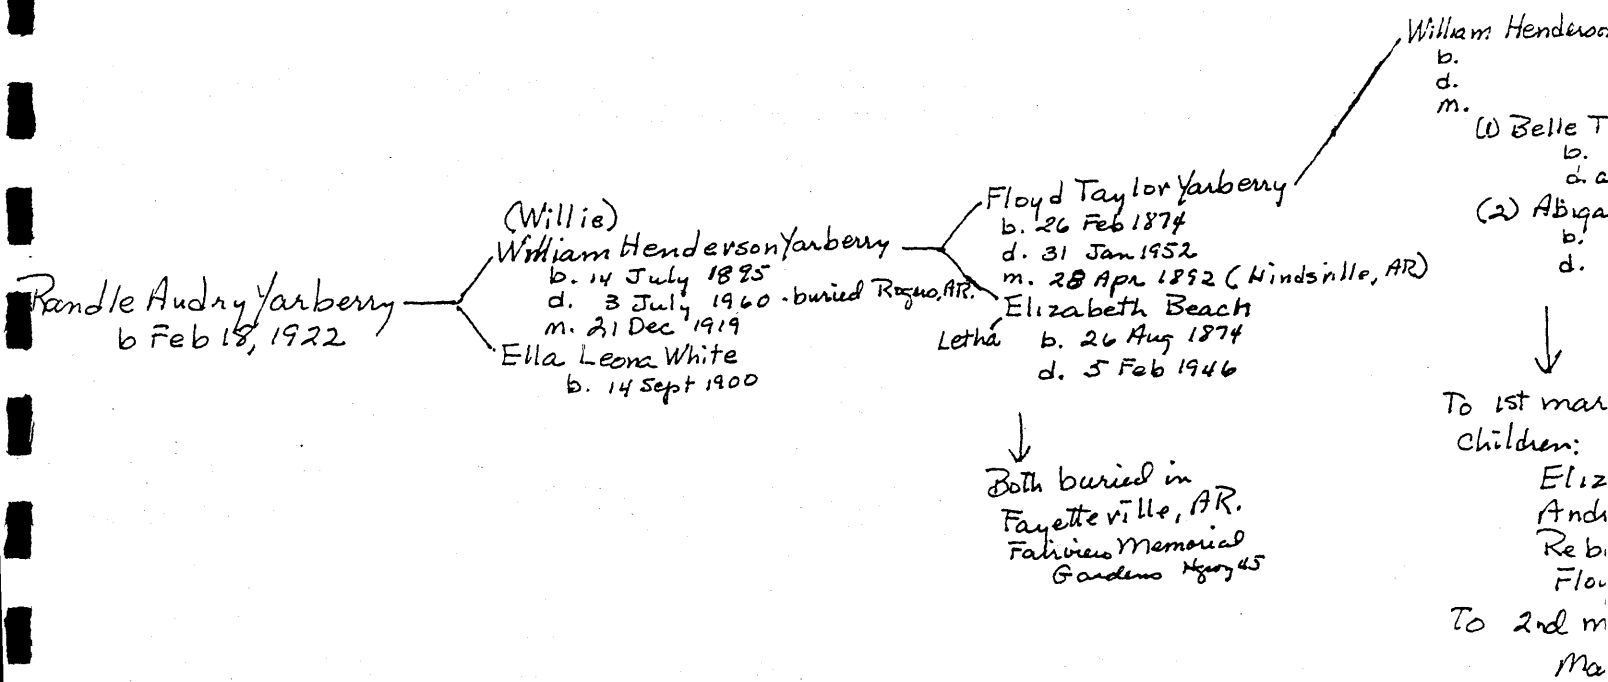 Randle Audry Yarberry
b Feb 18, 1922
(Willie)
William Henderson Yarberry
b. 14 July 1895
d. 3 July 1960 - buried Rogers, AR.
m. 21 Dec 1919
Ella Leona White
b. 14 Sept 1900
Floyd Taylor Yarberry
b. 26 Feb 1874
d. 31 Jan 1952
m. 28 Apr 1892 (Windsville, AR)
Elizabeth Beach
Letha b. 26 Aug 1874
d. 5 Feb 1946
Both buried in
Fayetteville, AR.
Fairview Memorial
Gardens Hgwy 45
William Henderso
b.
d.
m.
(1) Belle T
b.
d. a
(2) Abiga
b.
d.
To 1st mar
Children:
Eliz
Andr
Reb
Floy
To 2nd m
Ma